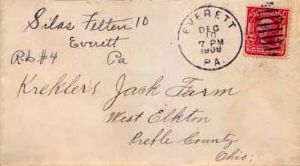 Silas Felten 10
Everett
R.D. #4 Pa
EVERETT
DEC
10
7 PM
1908
PA.
Krekler's Jack Farm
West Elkton
Preble County
Ohio.